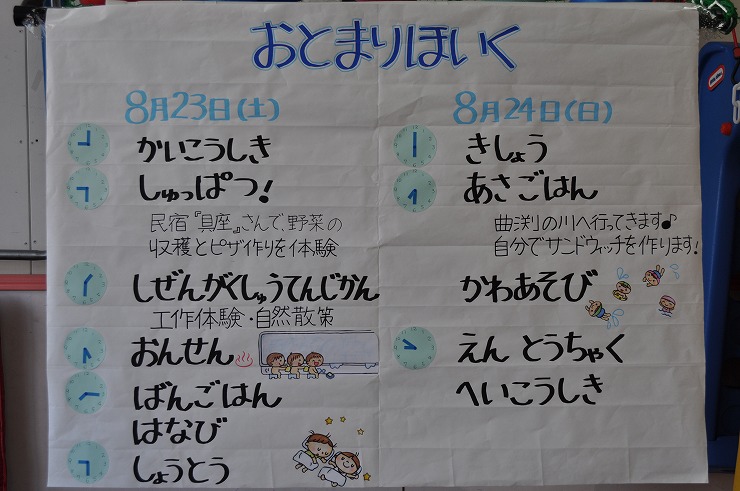 おとまりほいく
8月23日(土)
かいこうしき
しゅっぱつ!
民宿『具座』さんで、野菜の
収穫とピザ作りを体験
しぜんがくしゅうてんじかん
工作体験・自然散策
おんせん
ばんごはん
はなび
しょうとう
8月24日(日)
きしょう
あさごはん
曲渕の川へ行ってきます♪
自分でサンドウィッチを作ります!
かわあそび
えん とうちゃく
へいこうしき